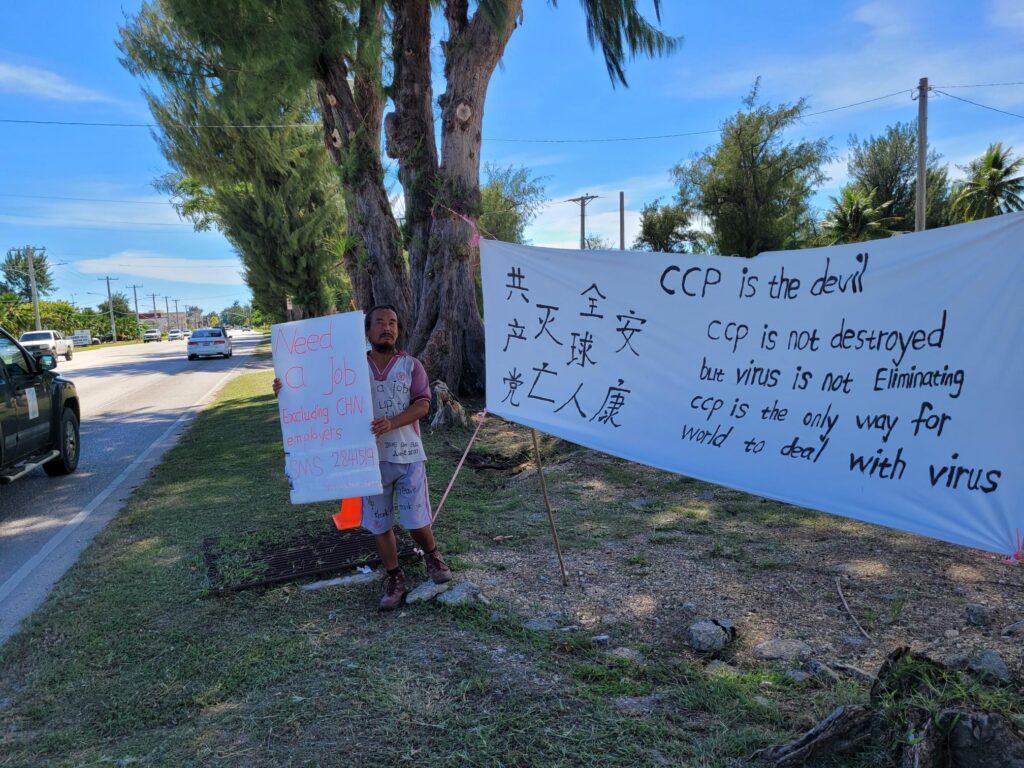 Need
a Job
Excluding CHN
employers
SMS 2841519
a job
up to
共产党
灭亡
全球人
安康
CCP is the devil
CCP is not destroyed
but virus is not Eliminating
CCP is the only way for
world to deal with virus